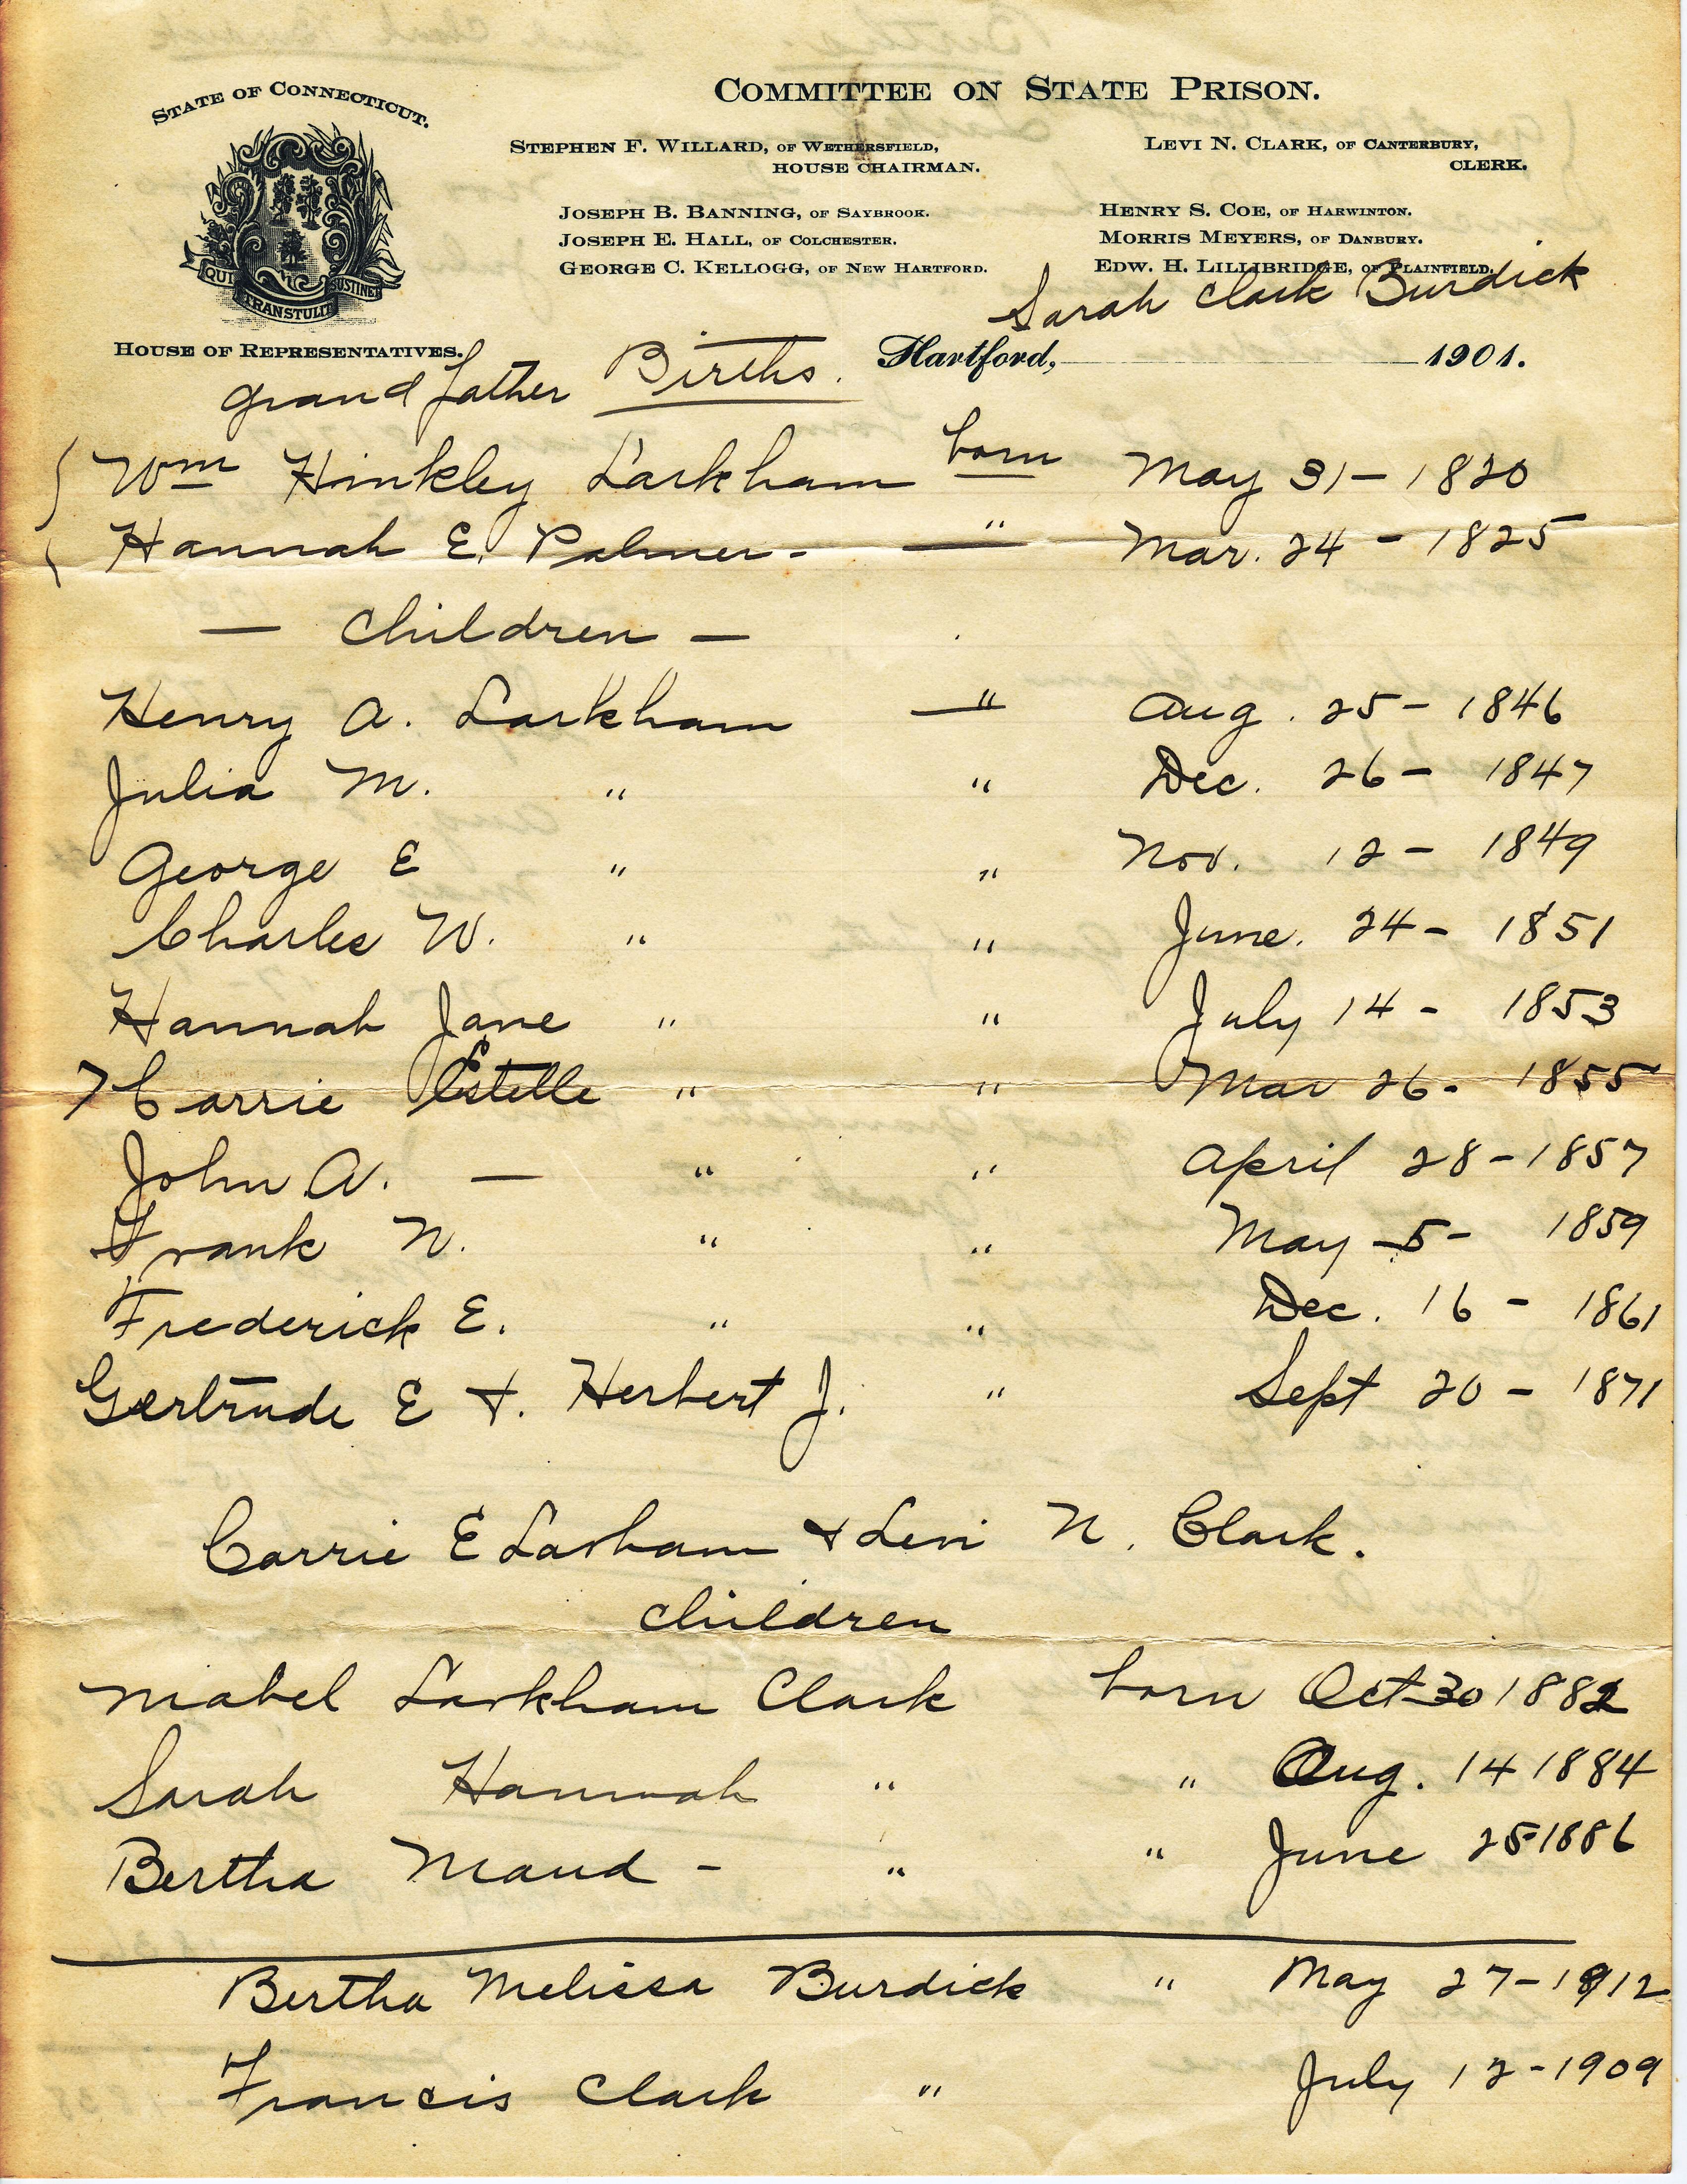 STATE OF CONNECTICUT.
QUI TRANSTULIT SUSTINET
HOUSE OF REPRESENTATIVES.
COMMITTEE ON STATE PRISON.
STEPHEN F. WILLARD, OF WETHERSFIELD,
HOUSE CHAIRMAN.
LEVI N. CLARK, OF CANTERBURY,
CLERK.
JOSEPH B. BANNING, OF SAYBROOK.
JOSEPH E. HALL, OF COLCHESTER.
GEORGE C. KELLOGG, OF NEW HARTFORD.
HENRY S. COE, OF HARWINTON.
MORRIS MEYERS, OF DANBURY.
EDW. H. LILLIBRIDGE, OF PLAINFIELD.
Sarah Clark Burdick
Hartford, 1901.
grand father Births.
Wm Hinkley Larkham born May 31 - 1820
Hannah E. Palmer - " Mar. 24 - 1825
- Children -
Henry A. Larkham " Aug. 25 - 1846
Julia M. " " Dec. 26 - 1847
George E " " Nov. 12 - 1849
Charles W. " " June. 24 - 1851
Hannah Jane " " July 14 - 1853
Carrie Estelle " " Mar 26 - 1855
John A. - " " April 28 - 1857
Frank N. " " May 5 - 1859
Frederick E. " " Dec. 16 - 1861
Gertrude E +. Herbert J. " Sept 20 - 1871
Carrie E Larham + Levi N. Clark.
Children
Mabel Larkham Clark born Oct 30 1882
Sarah Hannah " " Aug. 14 1884
Bertha Maud - " " June 25 1886
Bertha Melissa Burdick " May 27 - 1912
Francis Clark " July 12 - 1909